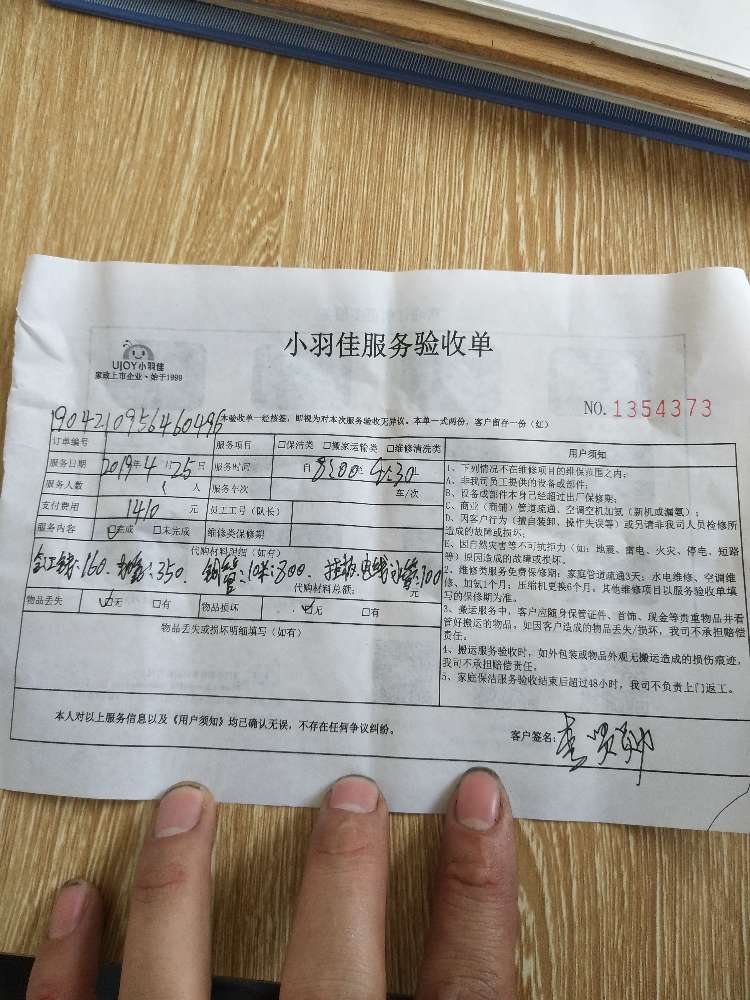 小羽佳服务验收单
UJOY小羽佳
家政上市企业·始于1999
NO. 1354373
1904210956460496
本验收单一经核签，即视为对本次服务验收无异议。本单一式两份，客户留存一份（红）
订单编号 服务项目 □保洁类 □搬家运输类 □维修清洗类
服务日期 2019年4月25日 服务时间 自8:00至9:30
服务人数 人 服务车次 车/次
支付费用 1410元 员工工号（队长）
服务内容 ☑完成 □未完成 维修类保修期
代购材料明细（如有）
:160. :350. 铜管:10米:800. 电线 :100
代购材料总额: 元
物品丢失 ☑无 □有 物品损坏 ☑无 □有
物品丢失或损坏明细填写（如有）
用户须知
1、下列情况不在维修项目的维保范围之内:
A、非我司员工提供的设备或部件;
B、设备或部件本身已经超过出厂保修期;
C、商业（商铺）管道疏通、空调空机加氨（新机或漏氨）;
D、因客户行为（擅自装卸、操作失误等）或另请非我司人员检修所
造成的故障或损坏。
E、因自然灾害等不可抗拒力（如: 地震、雷电、火灾、停电、短路
等）原因造成的故障或损坏。
2、维修类服务免费保修期: 家庭管道疏通3天; 水电维修、空调维
修、加氨1个月; 压缩机更换6个月, 其他维修项目以服务验收单填
写的保修期为准。
3、搬运服务中，客户应随身保管证件、首饰、现金等贵重物品并看
管好搬运的物品，如因客户造成的物品丢失/损坏，我司不承担赔偿
责任。
4、搬运服务验收时，如外包装或物品外观无搬运造成的损伤痕迹，
我司不承担赔偿责任。
5、家庭保洁服务验收结束后超过48小时，我司不负责上门返工。
本人对以上服务信息以及《用户须知》均已确认无误，不存在任何争议纠纷。
客户签名: